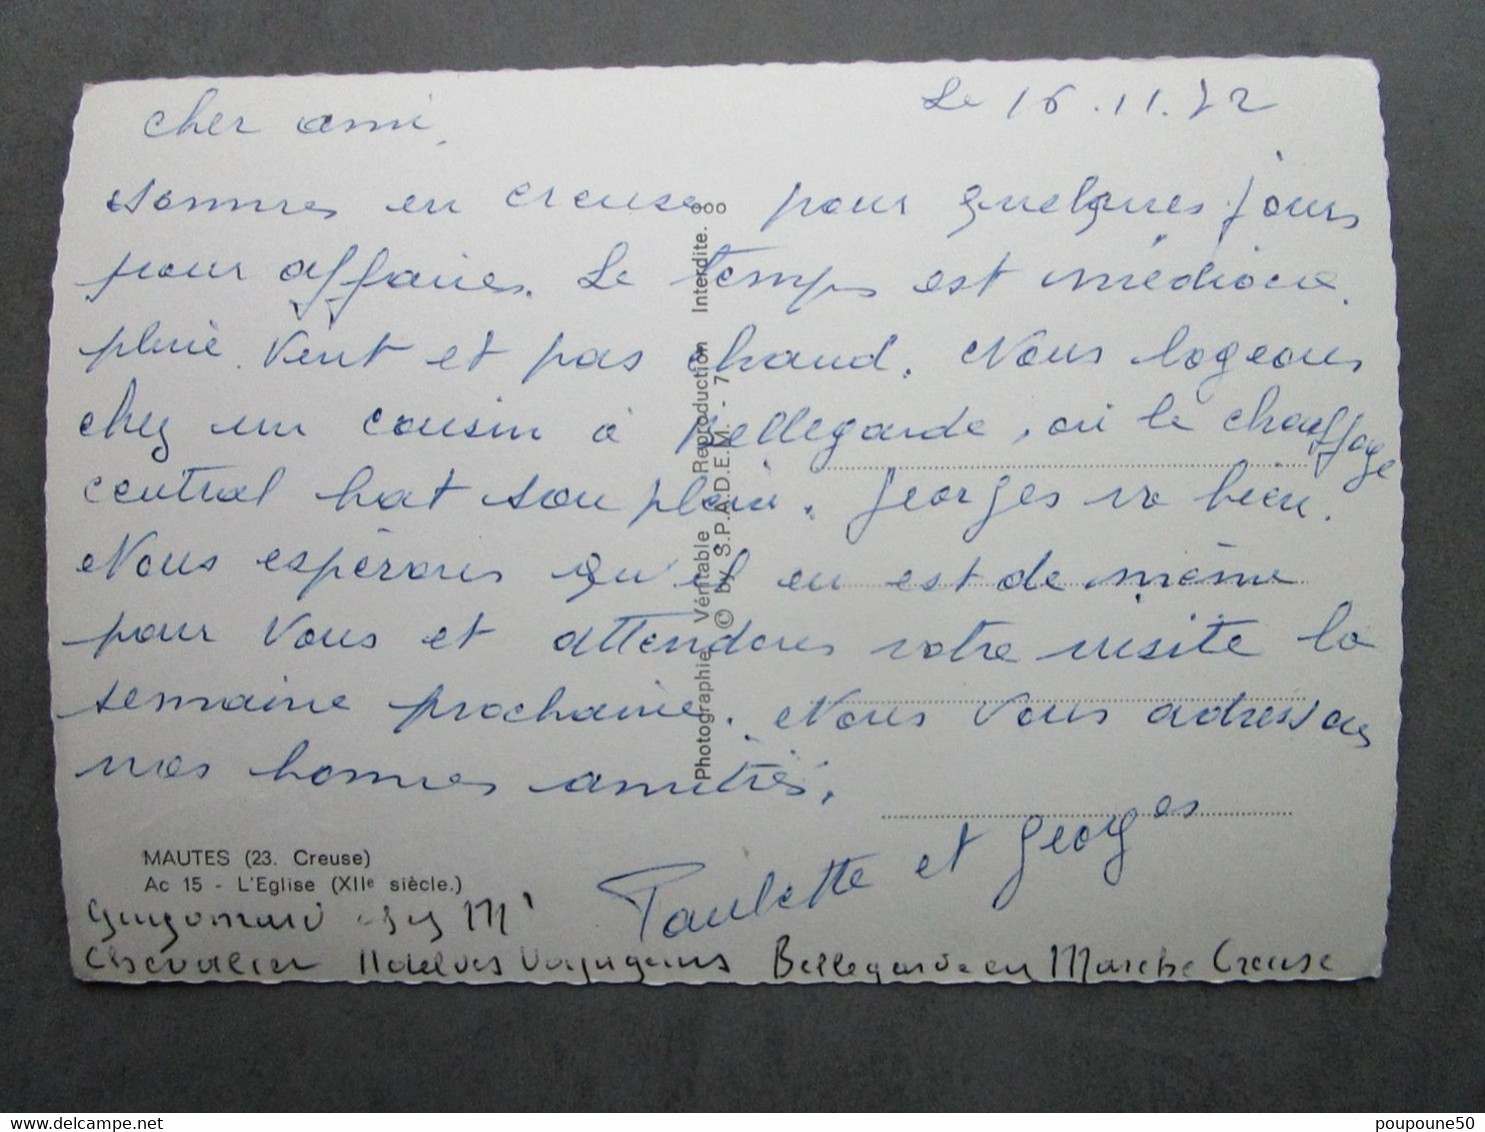 Le 16.11.72
cher ami,
sommes en creuse pour quelques jours
pour affaires. Le temps est médiocre.
pluie. Vent et pas chaud. Nous logeons
chez un cousin à Bellegarde, où le chauffage
central bat son plein. Georges va bien.
Nous espérons qu'il en est de même
pour Vous et attendons votre visite la
semaine prochaine. Nous Vous adressons
nos bonnes amitiés.
Paulette et Georges
MAUTES (23. Creuse)
Ac 15 - L'Eglise (XIIe siècle.)
Guygomard chez Mr
Chevalier Hotel des Voyageurs Bellegarde en Marche Creuse
Photographie Véritable Reproduction Interdite. 000
© by S.P.A.D.E.M. - 7
poupoune50